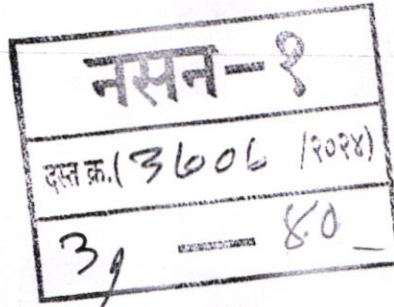 नसन-१
दस्त क्र.(3606 /२०२४)
3१ — ४0